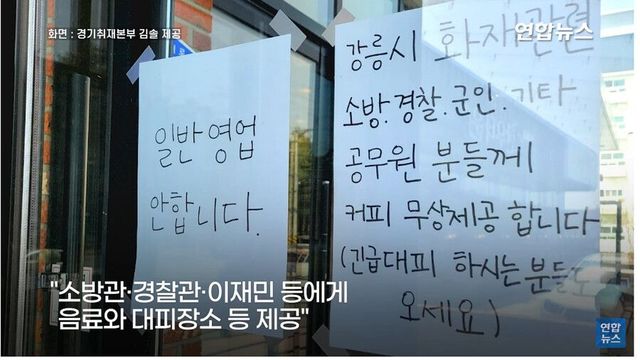 화면 : 경기취재본부 김솔 제공
연합뉴스
일반영업
안합니다.
강릉시 화재관련
소방.경찰.군인.기타
공무원 분들께
커피 무상제공 합니다
(긴급대피 하시는 분들도
오세요)
"소방관·경찰관·이재민 등에게
음료와 대피장소 등 제공"
연합
뉴스